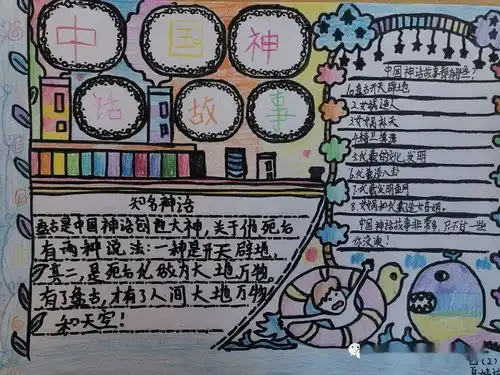 中国神
话故事
知名神话
盘古是中国神话的巨大神,关于他死后
有两种说法:一种是开天辟地,
其二,是死后化做为大地万物。
有了盘古,才有了人间大地万物
和天空!
中国神话故事都有哪些?
1.盘古开天辟地
2.女娲造人
3.女娲补天
4.精卫填海
5.伏羲的文化发明
6.伏羲造八卦
7.伏羲发明鱼网
8.女娲和伏羲造女婚姻。
中国神话故事非常多,只不过一些
你没速!
(2)